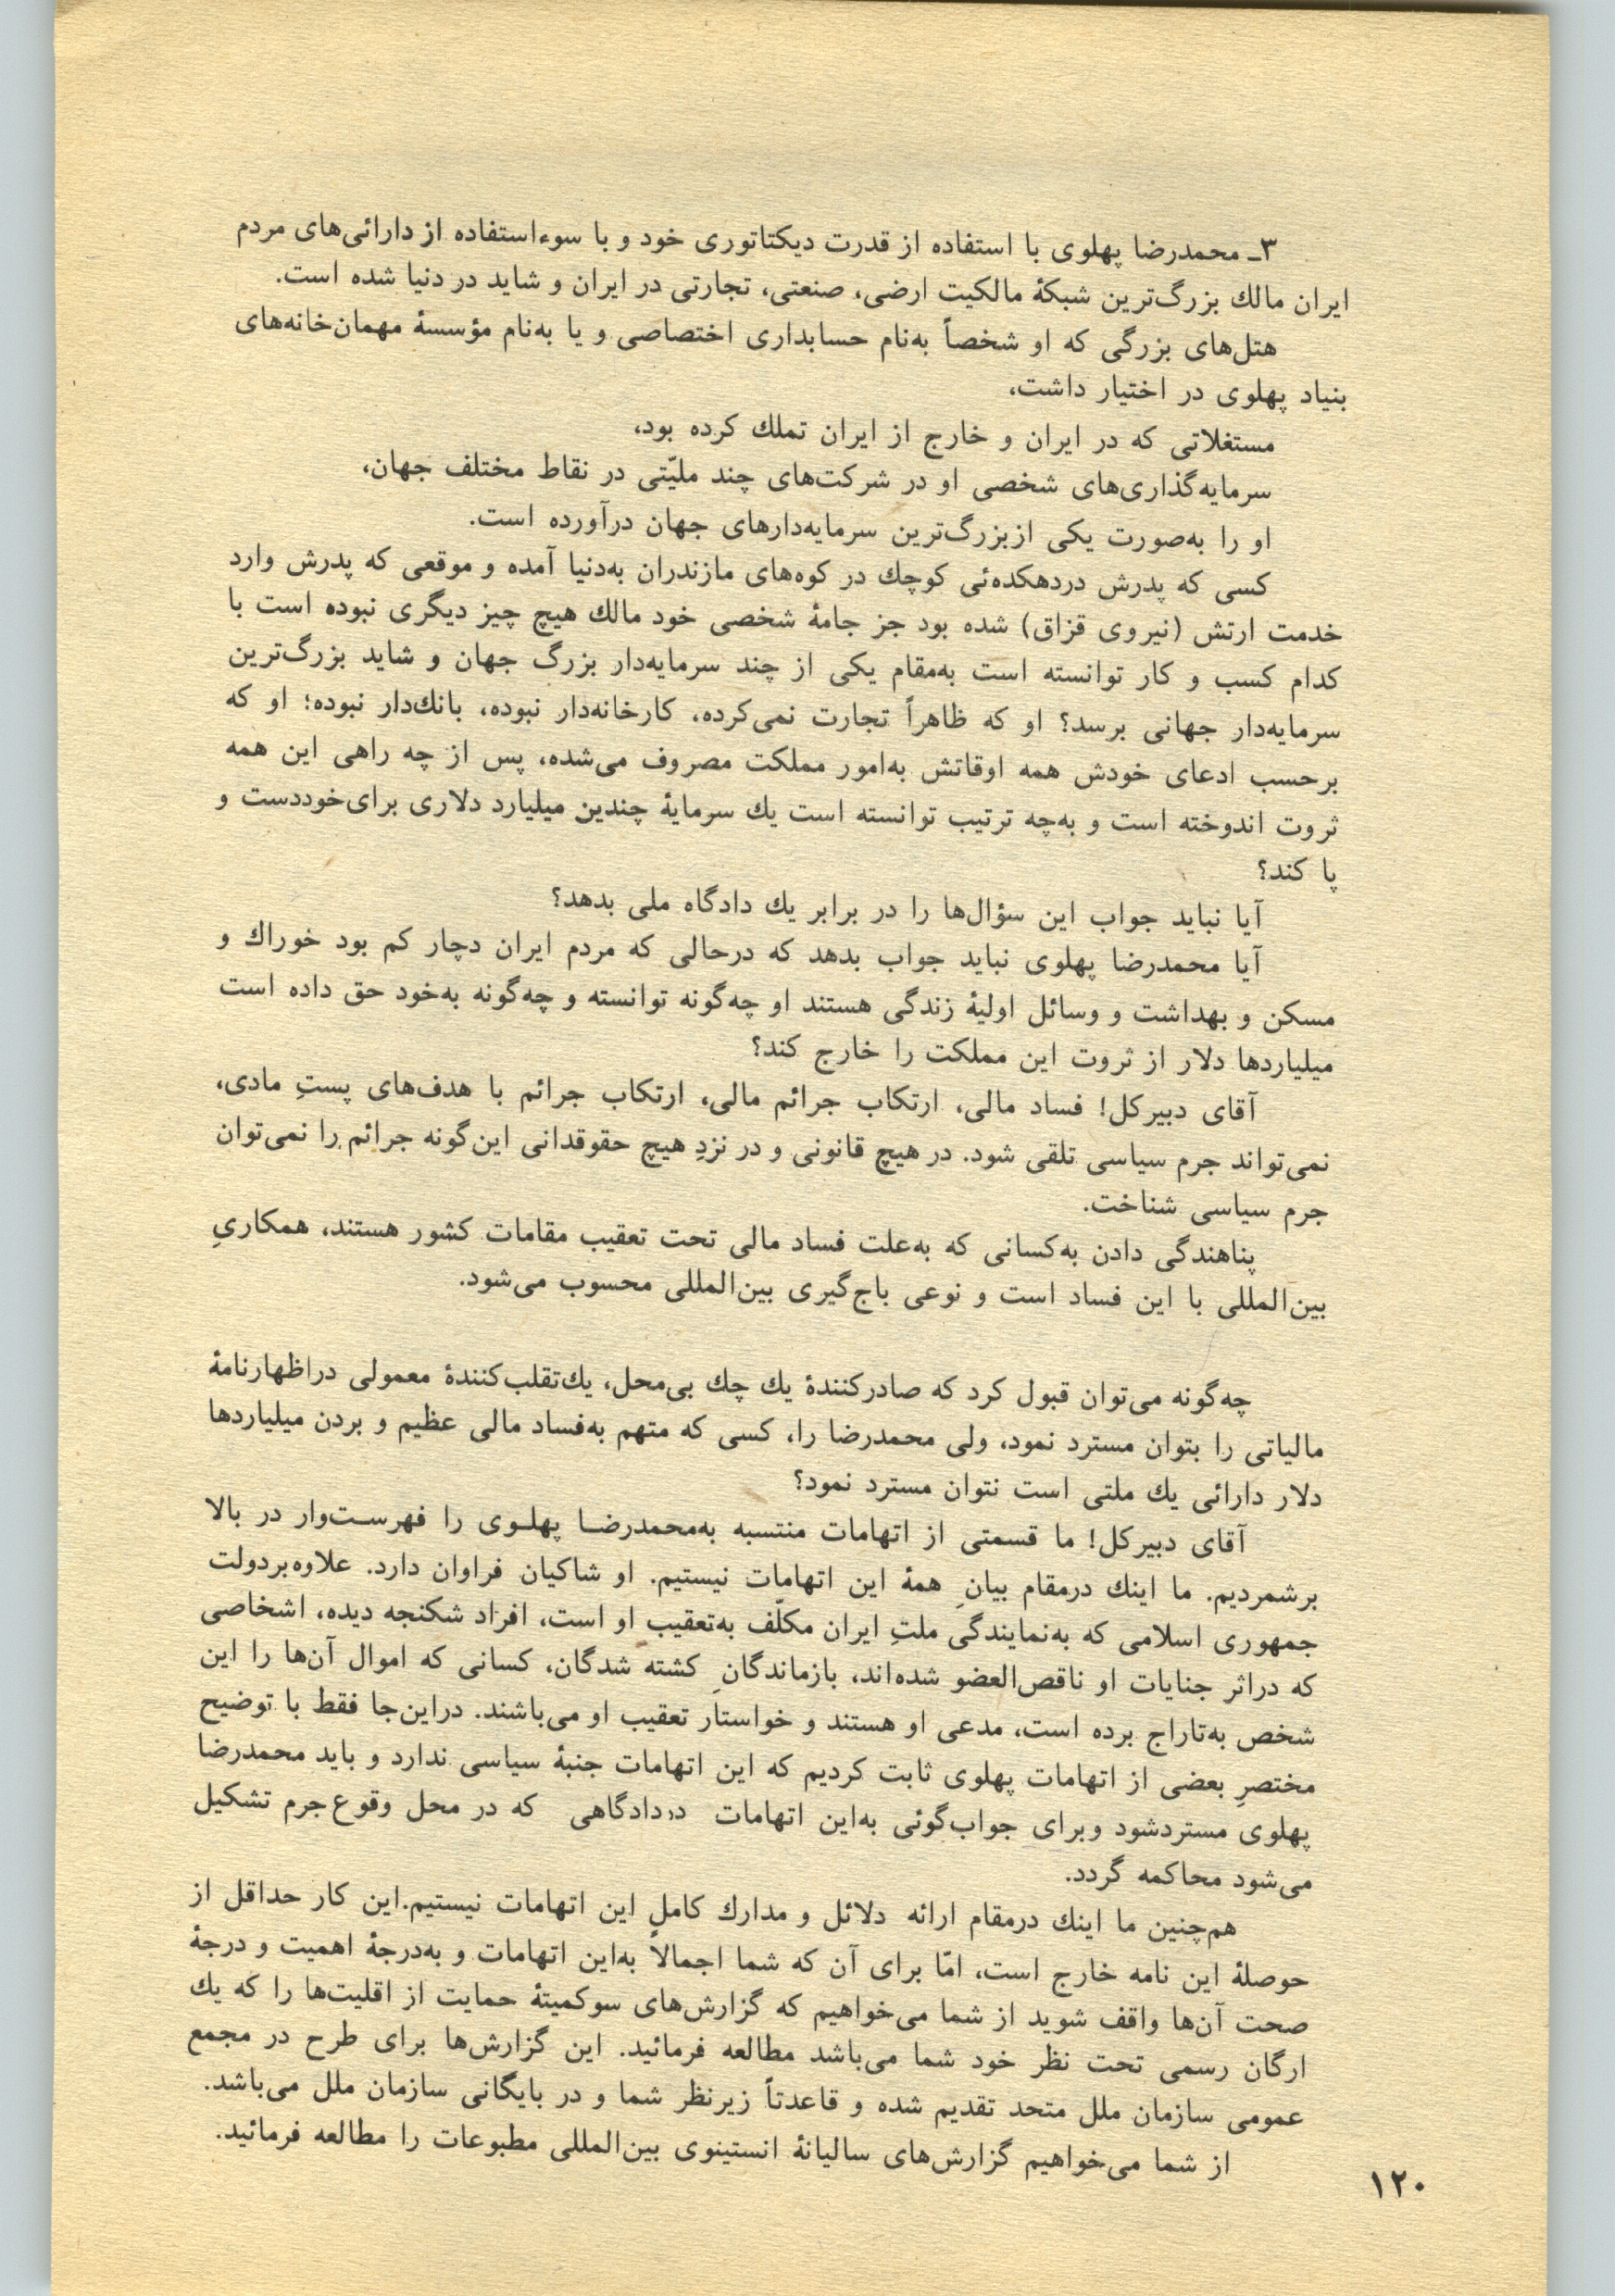 ۳ـ محمدرضا پهلوی با استفاده از قدرت دیکتاتوری خود و با سوءاستفاده از دارائی‌های مردم
ایران مالك بزرگ‌ترین شبکۀ مالکیت ارضی، صنعتی، تجارتی در ایران و شاید در دنیا شده است.
هتل‌های بزرگی که او شخصاً به‌نام حسابداری اختصاصی و یا به‌نام مؤسسۀ مهمان‌خانه‌های
بنیاد پهلوی در اختیار داشت،
مستغلاتی که در ایران و خارج از ایران تملك کرده بود،
سرمایه‌گذاری‌های شخصی او در شرکت‌های چند ملیّتی در نقاط مختلف جهان،
او را به‌صورت یکی ازبزرگ‌ترین سرمایه‌دارهای جهان درآورده است.
کسی که پدرش دردهکده‌ئی کوچك در کوه‌های مازندران به‌دنیا آمده و موقعی که پدرش وارد
خدمت ارتش (نیروی قزاق) شده بود جز جامۀ شخصی خود مالك هیچ چیز دیگری نبوده است با
کدام کسب و کار توانسته است به‌مقام یکی از چند سرمایه‌دار بزرگ جهان و شاید بزرگ‌ترین
سرمایه‌دار جهانی برسد؟ او که ظاهراً تجارت نمی‌کرده، کارخانه‌دار نبوده، بانك‌دار نبوده؛ او که
برحسب ادعای خودش همه اوقاتش به‌امور مملکت مصروف می‌شده، پس از چه راهی این همه
ثروت اندوخته است و به‌چه ترتیب توانسته است یك سرمایۀ چندین میلیارد دلاری برای‌خوددست و
پا کند؟
آیا نباید جواب این سؤال‌ها را در برابر یك دادگاه ملی بدهد؟
آیا محمدرضا پهلوی نباید جواب بدهد که درحالی که مردم ایران دچار کم بود خوراك و
مسکن و بهداشت و وسائل اولیۀ زندگی هستند او چه‌گونه توانسته و چه‌گونه به‌خود حق داده است
میلیاردها دلار از ثروت این مملکت را خارج کند؟
آقای دبیرکل! فساد مالی، ارتکاب جرائم مالی، ارتکاب جرائم با هدف‌های پستِ مادی،
نمی‌تواند جرم سیاسی تلقی شود. در هیچ قانونی و در نزدِ هیچ حقوقدانی این‌گونه جرائم را نمی‌توان
جرم سیاسی شناخت.
پناهندگی دادن به‌کسانی که به‌علت فساد مالی تحت تعقیب مقامات کشور هستند، همکاریِ
بین‌المللی با این فساد است و نوعی باج‌گیری بین‌المللی محسوب می‌شود.
چه‌گونه می‌توان قبول کرد که صادرکنندۀ یك چك بی‌محل، یك‌تقلب‌کنندۀ معمولی دراظهارنامۀ
مالیاتی را بتوان مسترد نمود، ولی محمدرضا را، کسی که متهم به‌فساد مالی عظیم و بردن میلیاردها
دلار دارائی یك ملتی است نتوان مسترد نمود؟
آقای دبیرکل! ما قسمتی از اتهامات منتسبه به‌محمدرضـا پهلـوی را فهرسـت‌وار در بالا
برشمردیم. ما اینك درمقام بیانِ همۀ این اتهامات نیستیم. او شاکیان فراوان دارد. علاوه‌بردولت
جمهوری اسلامی که به‌نمایندگی ملتِ ایران مکلّف به‌تعقیب او است، افراد شکنجه دیده، اشخاصی
که دراثر جنایات او ناقص‌العضو شده‌اند، بازماندگانِ کشته شدگان، کسانی که اموال آن‌ها را این
شخص به‌تاراج برده است، مدعی او هستند و خواستار تعقیب او می‌باشند. دراین‌جا فقط با توضیح
مختصرِ بعضی از اتهامات پهلوی ثابت کردیم که این اتهامات جنبۀ سیاسی ندارد و باید محمدرضا
پهلوی مستردشود وبرای جواب‌گوئی به‌این اتهامات در دادگاهی که در محل وقوع جرم تشکیل
می‌شود محاکمه گردد.
هم‌چنین ما اینك درمقام ارائه دلائل و مدارك کاملِ این اتهامات نیستیم.این کار حداقل از
حوصلۀ این نامه خارج است، امّا برای آن که شما اجمالاً به‌این اتهامات و به‌درجۀ اهمیت و درجۀ
صحت آن‌ها واقف شوید از شما می‌خواهیم که گزارش‌های سوکمیتۀ حمایت از اقلیت‌ها را که یك
ارگان رسمی تحت نظر خود شما می‌باشد مطالعه فرمائید. این گزارش‌ها برای طرح در مجمع
عمومی سازمان ملل متحد تقدیم شده و قاعدتاً زیرنظر شما و در بایگانی سازمان ملل می‌باشد.
از شما می‌خواهیم گزارش‌های سالیانۀ انستیتوی بین‌المللی مطبوعات را مطالعه فرمائید.
۱۲۰